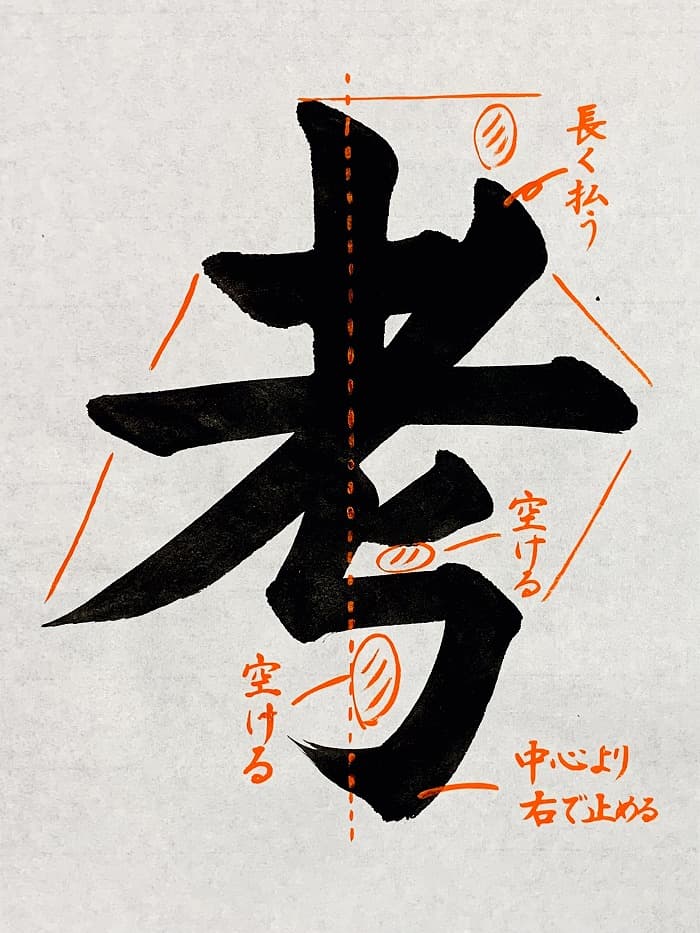 考
長く払う
空ける
空ける
中心より
右で止める